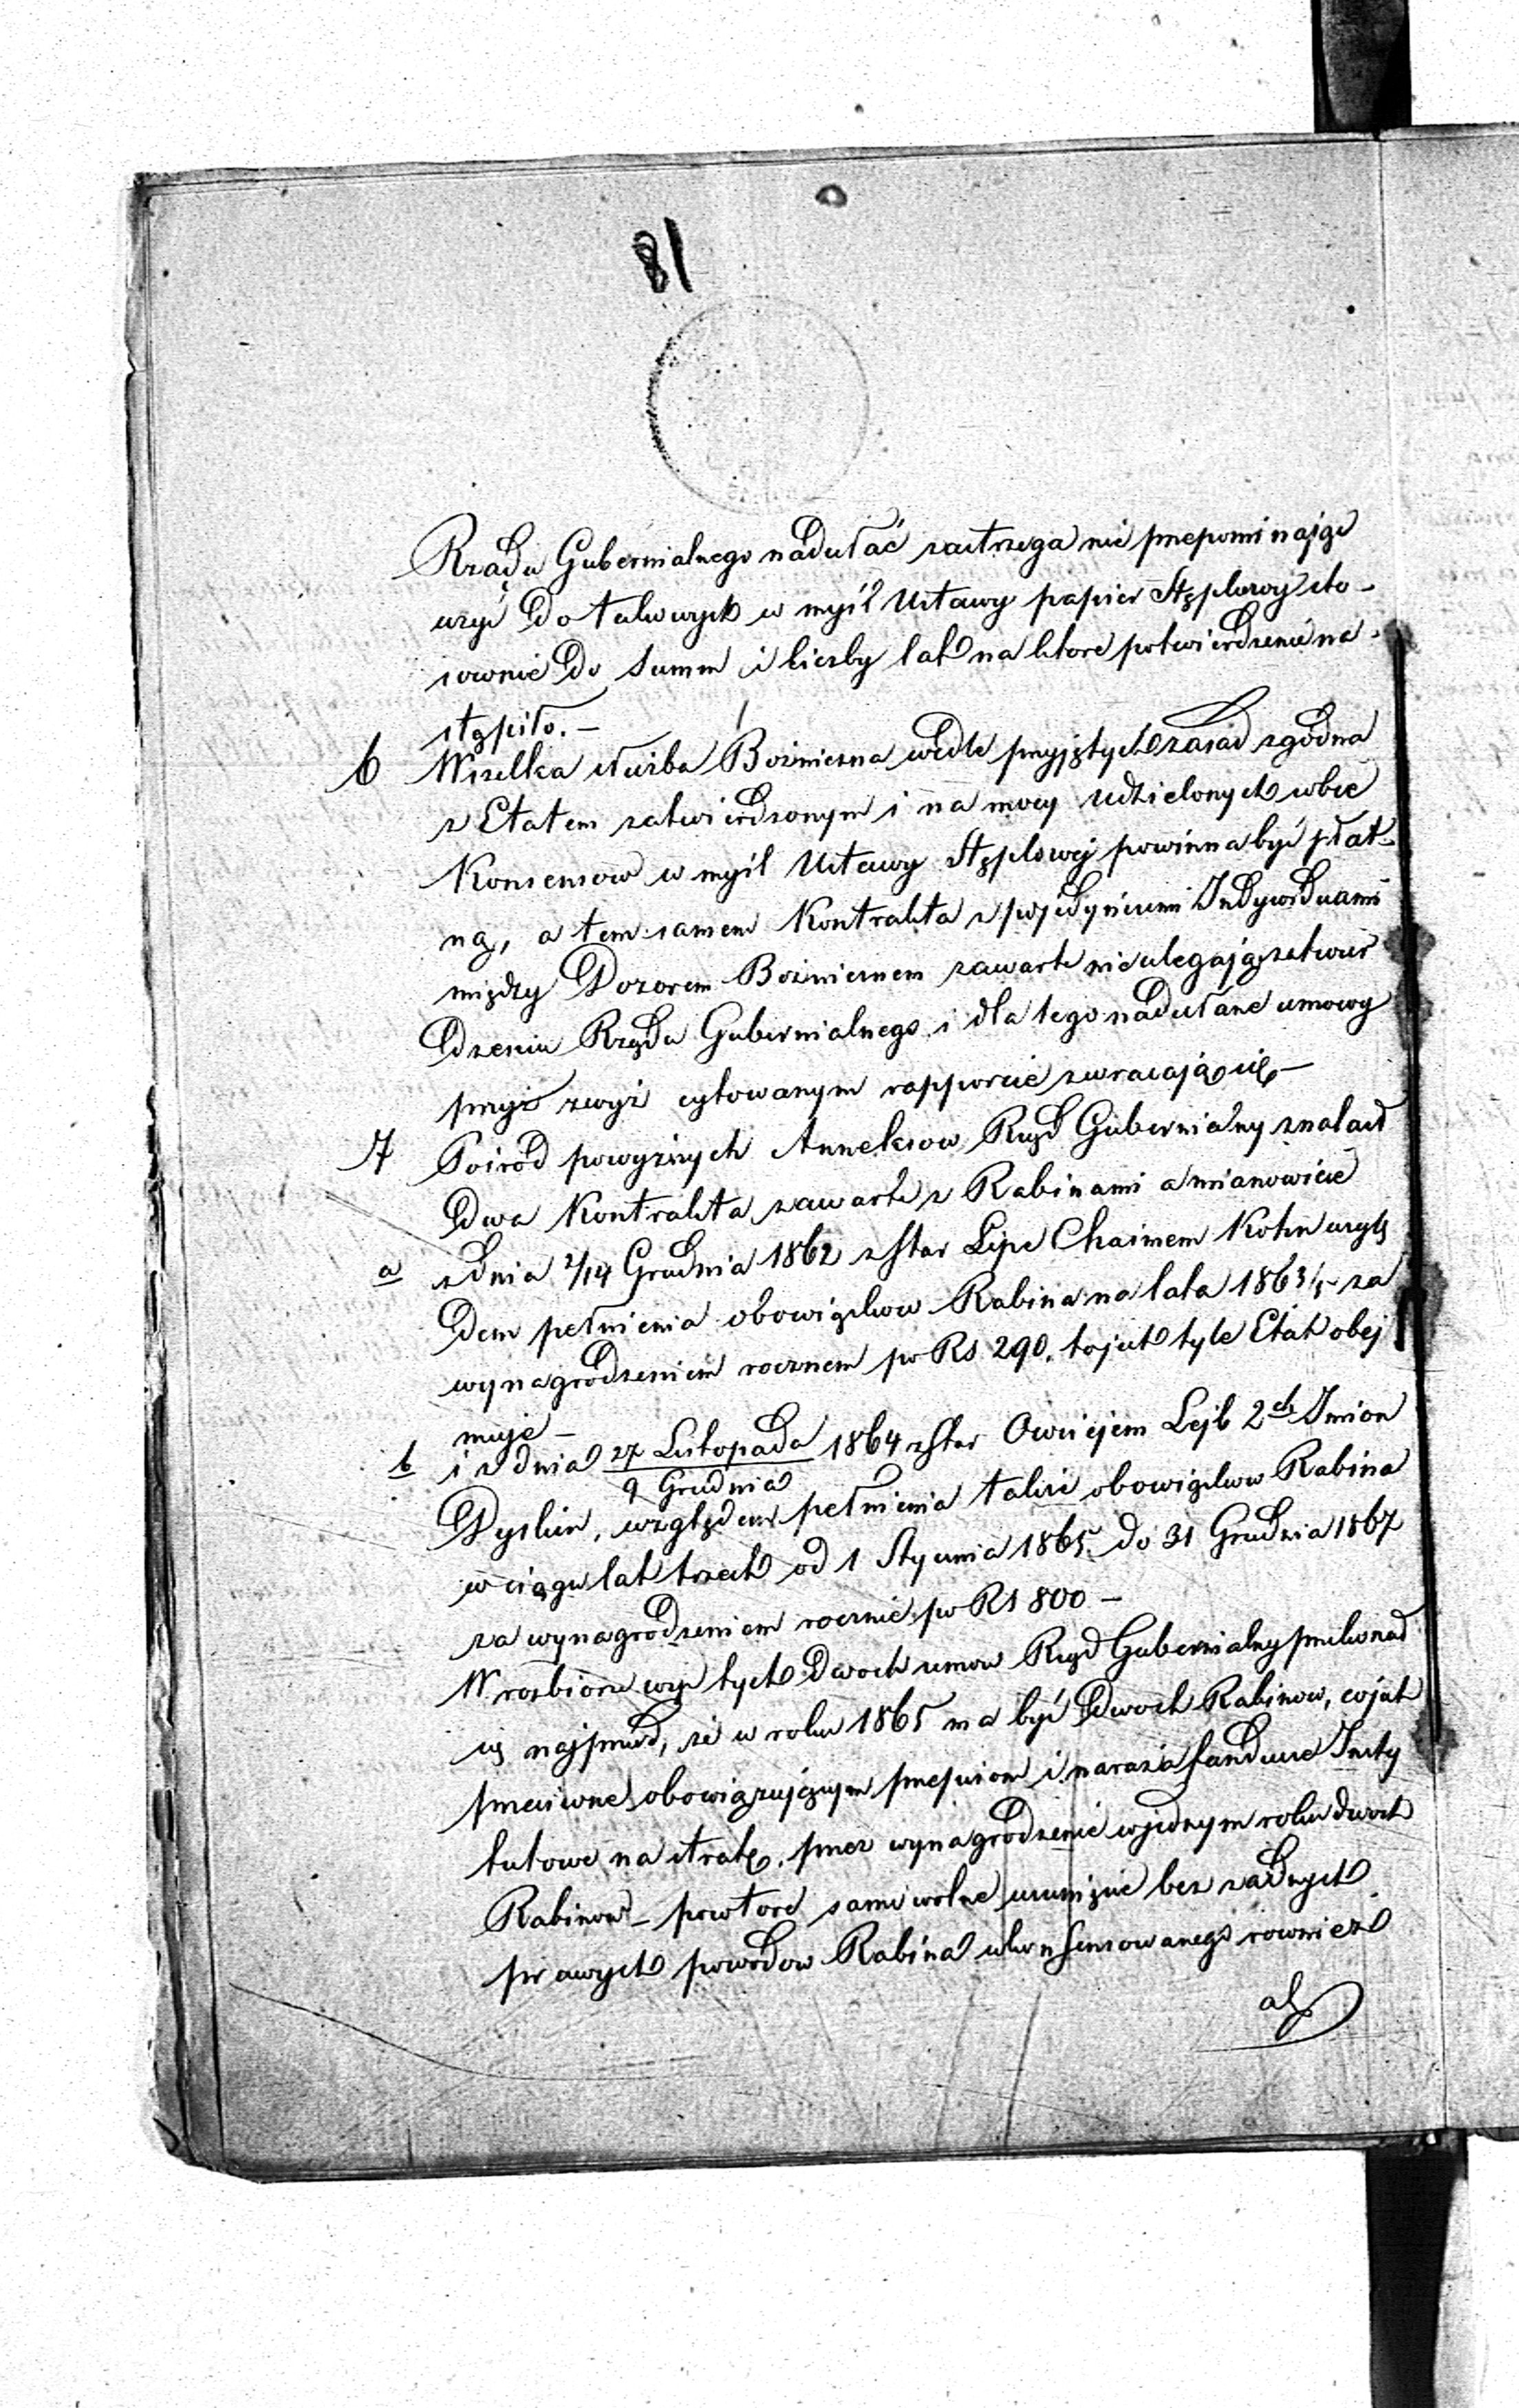 81
Rządu Gubernialnego nadesłać zastrzega nie przepominając
użyć do takowych w myśl Ustawy papier Stęplowy sto-
sownie do Summ i liczby lat na które potwierdzenie na-
stąpiło. –
6 Wszelka służba Bóżniczna wedle przyjętych zasad zgodna
z Etatem zatwierdzonym i na mocy udzielonych wbec
Konsensow w myśl Ustawy Stęplowej powinna być płat-
ną, a tem samem Kontrakta z pojedyńczemi Indywiduami
między Dozorem Bóżnicznem zawarte nie ulegają zatwier
dzeniu Rządu Gubernialnego i dla tego nadesłane umowy
przy zwyż cytowanym rapporcie zwracają się –
7 Pośród powyższych Anneksow Rząd Gubernialny znalazł
dwa Kontrakta zawarte z Rabinami a mianowicie
a z dnia 2/14 Grudnia 1862 z Star Lipe Chaimem Kohn wzglę
dem pełnienia obowiązkow Rabina na lata 1863/5 za
wynagrodzeniem rocznem po Rs 290. to jest tyle Etat obej
muje –
b i z dnia 27 Listopada 1864 z Star Owsiejem Lejb 2ch Imion
9 Grudnia
Dyskin, względem pełnienia takiż obowiązkow Rabina
w ciągu lat trzech od 1 Stycznia 1865 do 31 Grudnia 1867
za wynagrodzeniem rocznie po Rs 800 –
W rozbiorze tych dwoch umow Rząd Gubernialny przekonał
się najprzod, że w roku 1865 ma być dwoch Rabinow, co jest
przeciwne obowiązującym przepisom i naraża fundusze Insty
tutowe na stratę, przez wynagrodzenie w jednym roku dwoch
Rabinow – powtore samowolne usunięcie bez żadnych
prawych powodow Rabina ukonsensowanego rownież